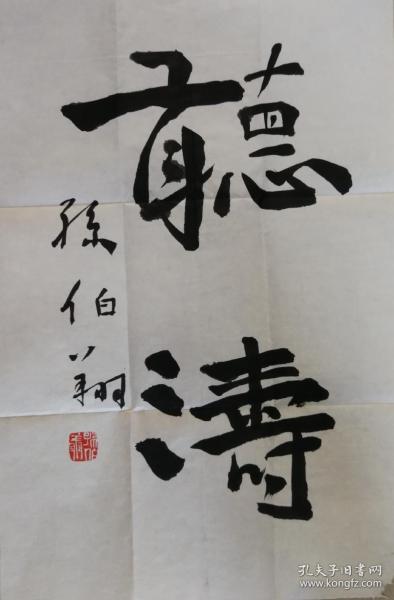 聽濤
孫伯翔
孔夫子旧书网
www.kongfz.com